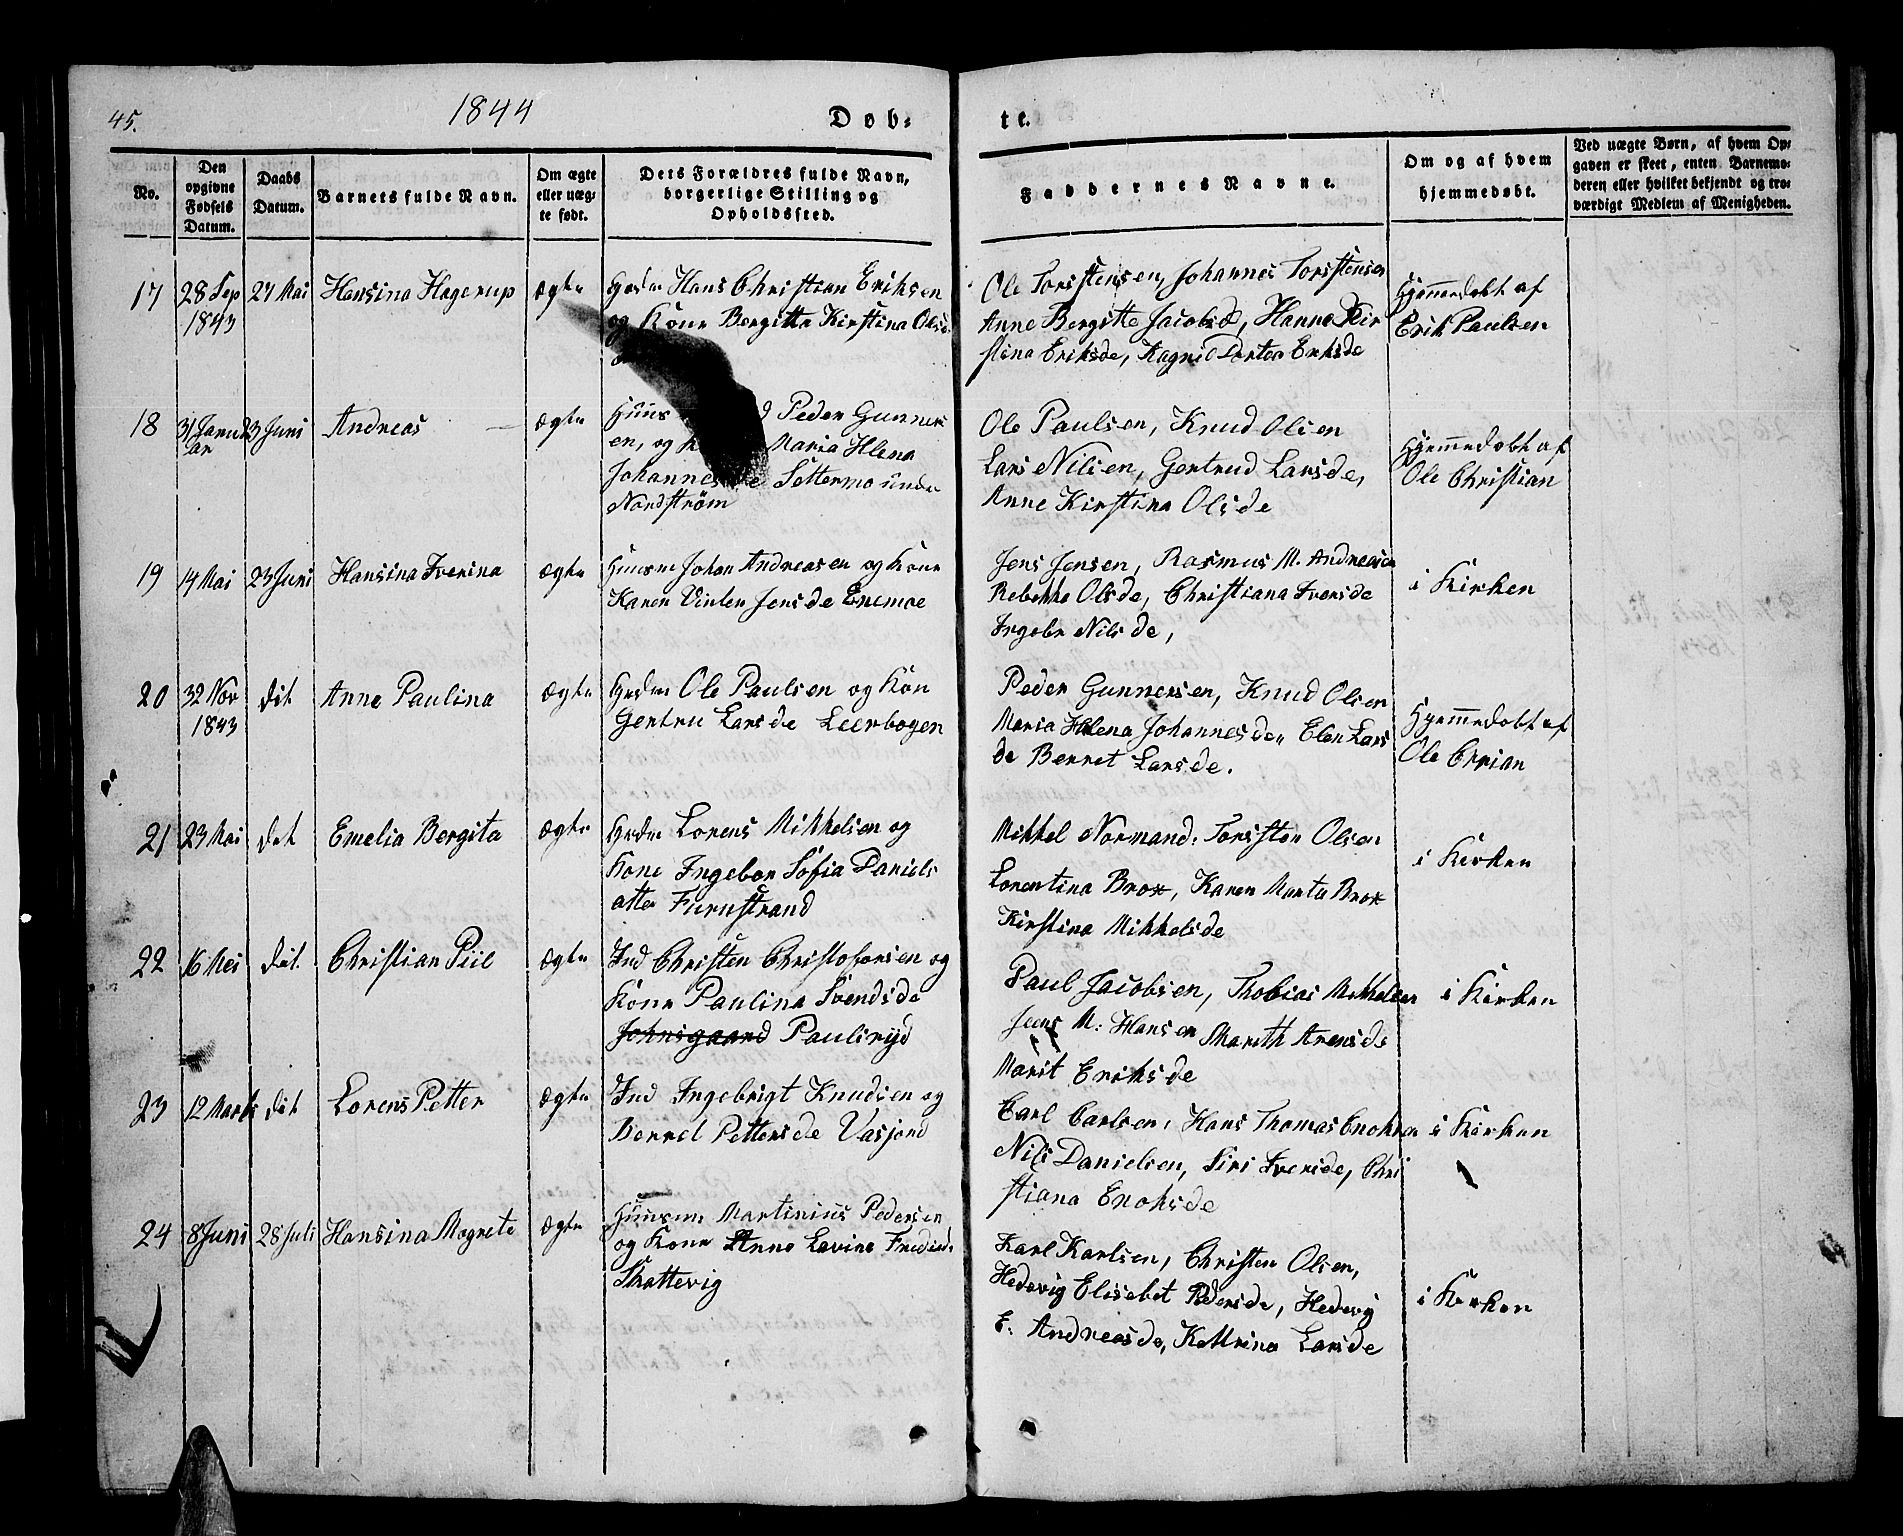 45.
1844
Døb-
te.
No.
Den opgivne Fødsels Datum.
Daabs Datum.
Barnets fulde Navn.
Om ægte eller uægte født.
Dets Forældres fulde Navn, borgerlige Stilling og Opholdssted.
Faddernes Navne.
Om og af hvem hjemmedøbt.
Ved uægte Børn, af hvem Opgaven er skeet, enten Barnemoderen eller hvilket bekjendt og troværdigt Medlem af Menigheden.
17 28 Sep 27 Mai Hansina Hagerup ægte Hans Christian Eriksen
1843 og Kone Bergitte Kirstina
Ole Torstensen, Johannes Torstensen
Anne Bergitte Jacobsd, Hanna Kir
stina Eriksde, Eriksde
Hjemmedøbt af
Erik Paulsen
18 31 Janu 23 Juni Andreas ægte Huus Peder Gunner
ar en, og Maria Hlena
Johannes Settermo under
Nordstrøm
Ole Paulsen, Knud Olsen
Lars Nilsen, Gertrud Larsde,
Anne Kirstina Olsde
Hjemmedøbt af
Ole Christian
19 14 Mai 23 Juni Hansina Iverina ægte Huusm Johan Andreasen og Kone
Karen Jensde Enemoe
Jens Jensen, Rasmus M. Andreasen
Rebekka Olsde, Christiana Iversde
Ingebr Nilsde,
i Kirken
20 32 Nov dit Anne Paulina ægte Ole Paulsen og Kon
1843 Gertru Larsde Leerbogen
Peder Gunnersen, Knud Olsen
Maria Helena Johannesde, Elen Lars
de Berret Larsde.
Hjemmedøbt af
Ole Crrian
21 23 Mai det Emelia Bergita ægte Lorens Mikkelsen og
Kone Ingebor Sofia Daniels
atter Furustrand
Mikkel Normand, Torsten Olsen
Lorentina Brox, Karen Marta Brox
Kirstina Mikkelsde
i Kirken
22 16 Mei dit. Christian Piil ægte Ind Christen Christofersen og
Kone Paulina Svendsde
Johnsgaard Paulsryd
Paul Jacobsen, Thobias Mikkelsen
Jens M: Hansen Mareth Arensde
Marit Eriksde
i Kirken
23 12 Marts dit Lorens Petter ægte Ind Ingebrigt Knudsen og
Berret Pettersde Vasjord
Carl Carlsen, Hans Thomas Enoksen
Nils Danielsen, Siri Iversde, Chri
stiana Enoksde
i Kirken
24 8 Juni 28 Juli Hansina Magrete ægte Huusm Martinius Pedersen
og Kone Anne Lavina
Skattevig
Karl Karlsen, Christen Olsen,
Hedevig Elisebet Pedersde, Hedevig
E. Andreasde, Kattrina Larsde
i Kirken